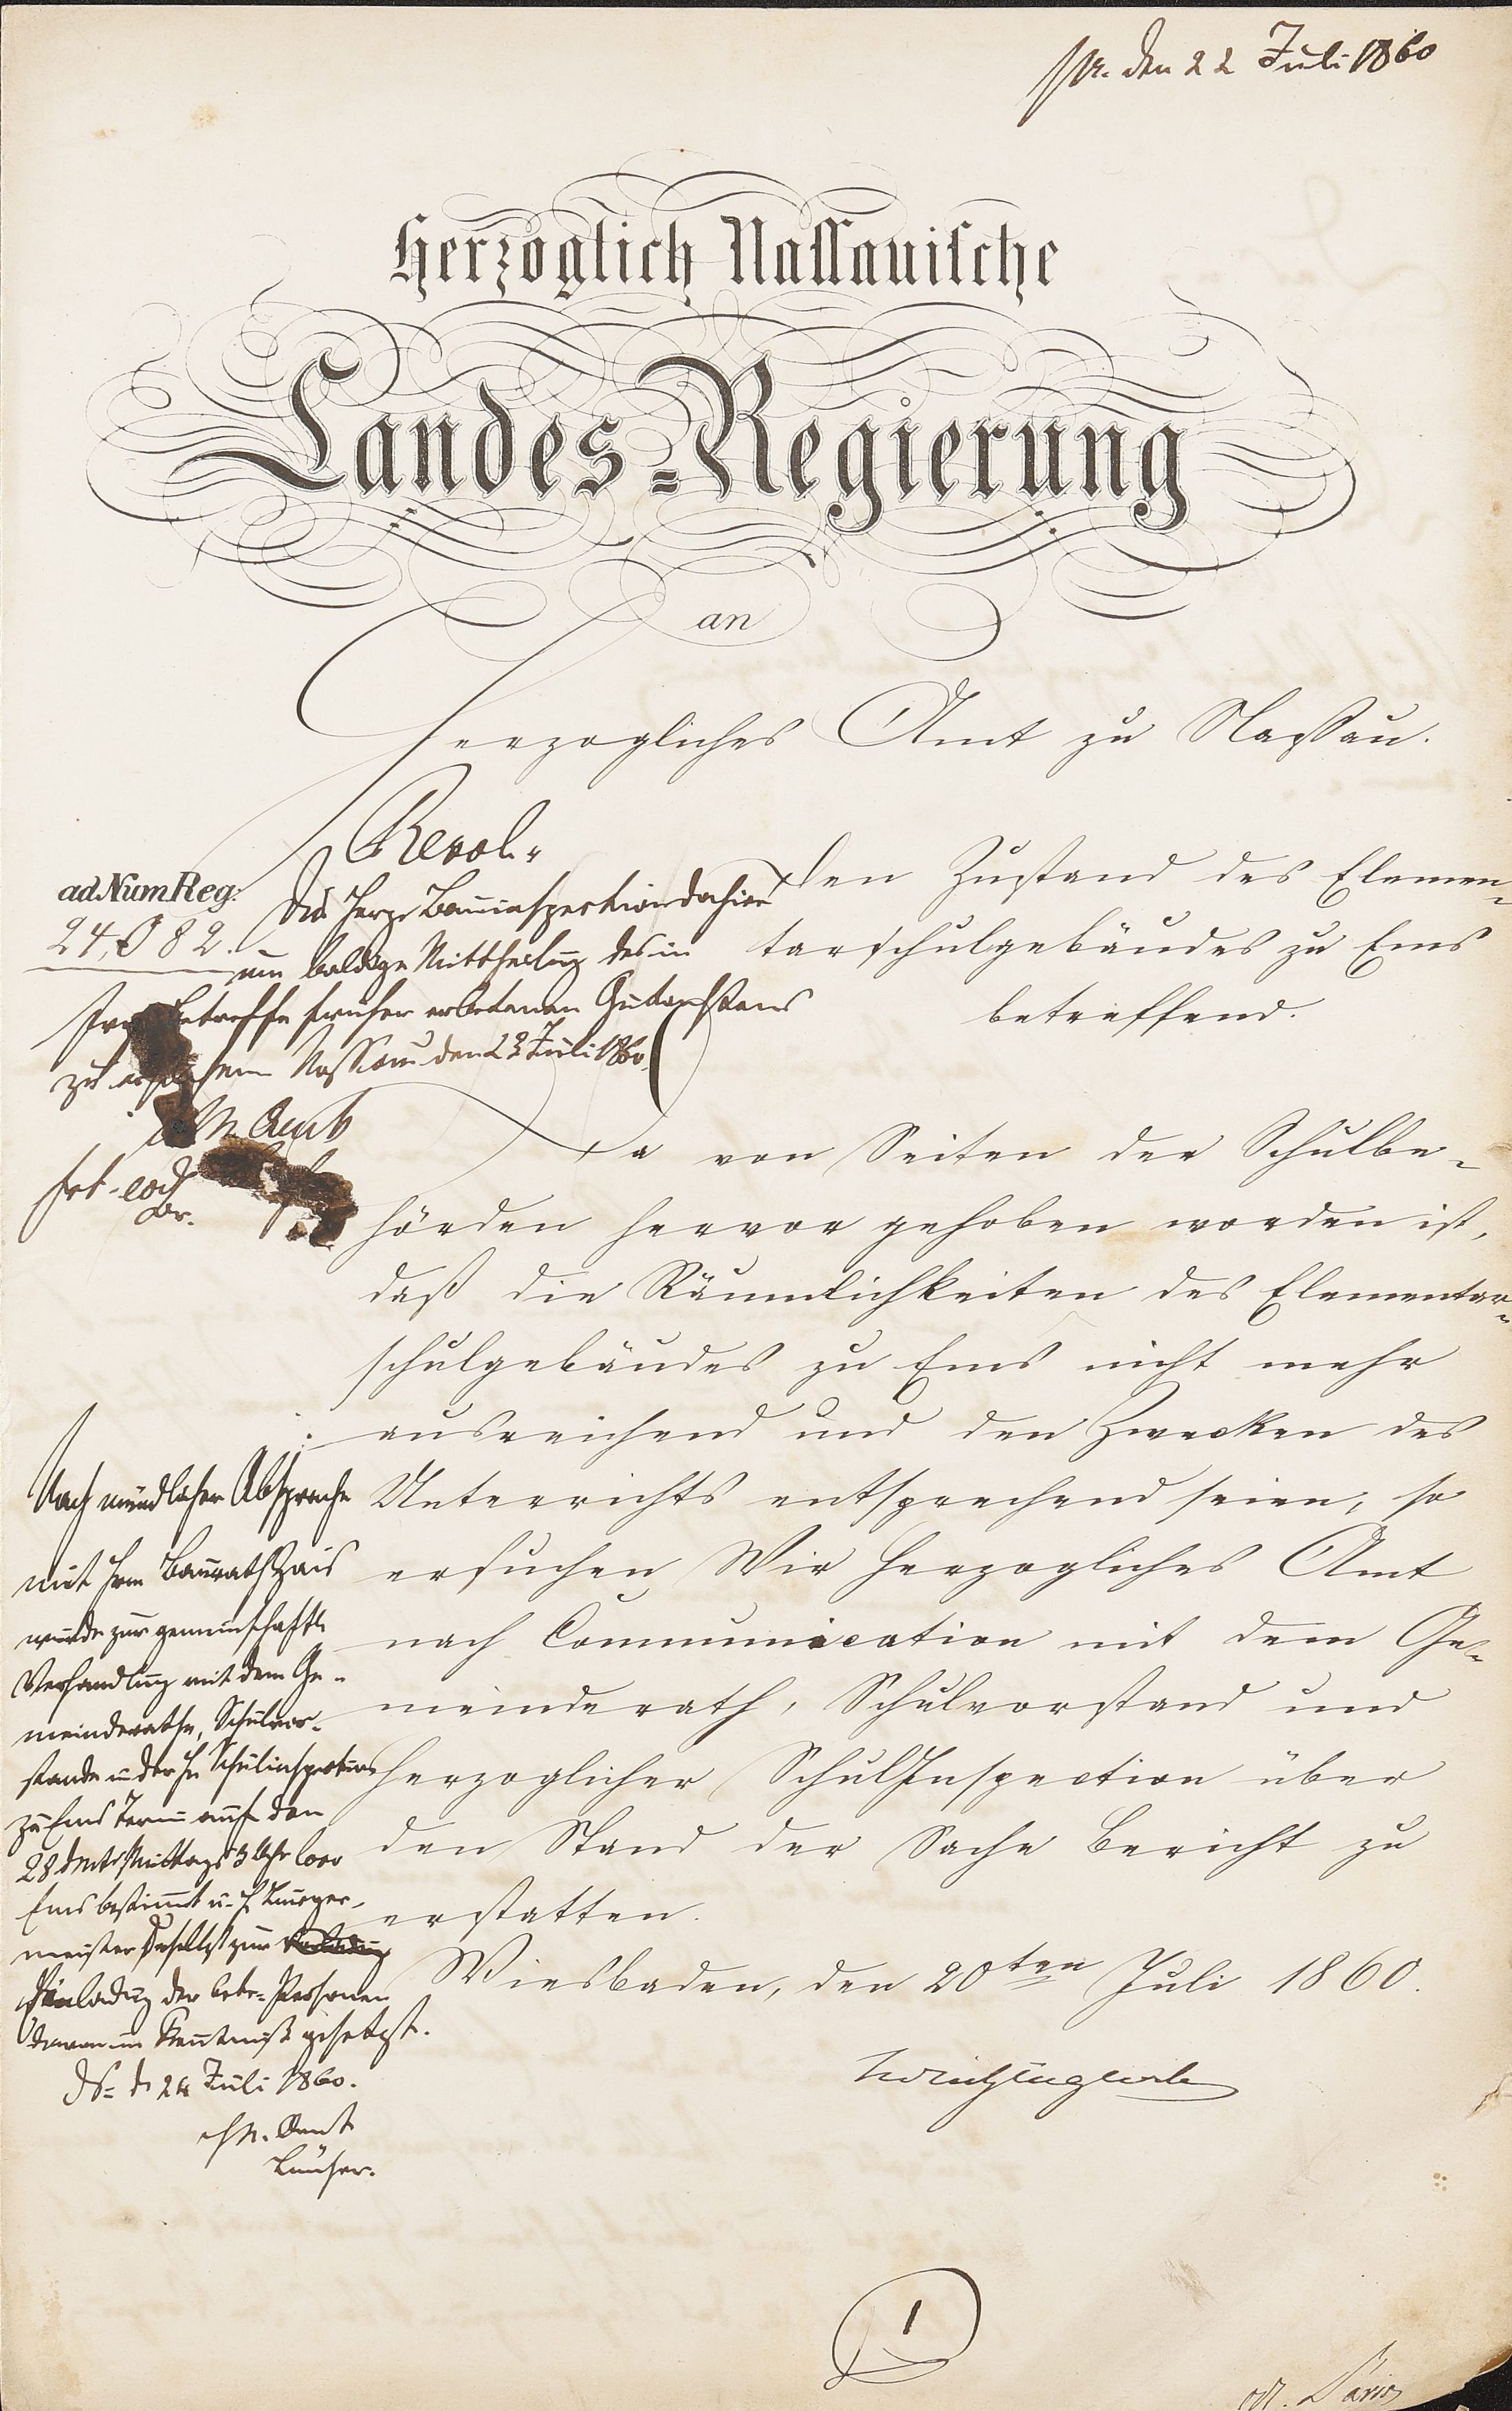 pr. den 22 Juli 1860
Herzoglich Nassauische
Landes-Regierung
an
Herzogliches Amt zu Nassau.
Resol.
ad Num Reg:
24,082.
Die Herz. Bauinspection dahier
um baldige Mittheilung des in
Betreffe früher erbetenen Gutachtens
zu ersuchen Nassau den 23 Juli 1860
Amt
den Zustand des Elemen-
tarschulgebäudes zu Ems
betreffend.
Da von Seiten der Schulbe-
hörden hervor gehoben worden ist,
daß die Räumlichkeiten des Elementar-
schulgebäudes zu Ems nicht mehr
ausreichend und den Zwecken des
Unterrichts entsprechend seien, so
ersuchen Wir Herzogliches Amt
nach Communication mit dem Ge-
meinderath, Schulvorstand und
Herzoglicher SchulInspection über
den Stand der Sache Bericht zu
erstatten.
Wiesbaden, den 20ten Juli 1860.
Nach mündlicher Absprache
mit Hrn Baurath Zais
wurde zur gemeinschaftl.
Verhandlung mit dem Ge-
meinderathe, Schulvor-
stande u der Hz Schulinspection
zu Ems Termin auf den
28 d Mts Mittags 3 Uhr loco
Ems bestimmt u. H Bürger-
meister daselbst zur
Einladung der betr. Personen
davon in Kenntniß gesetzt.
Ns. d 24 Juli 1860.
H N. Amt
1